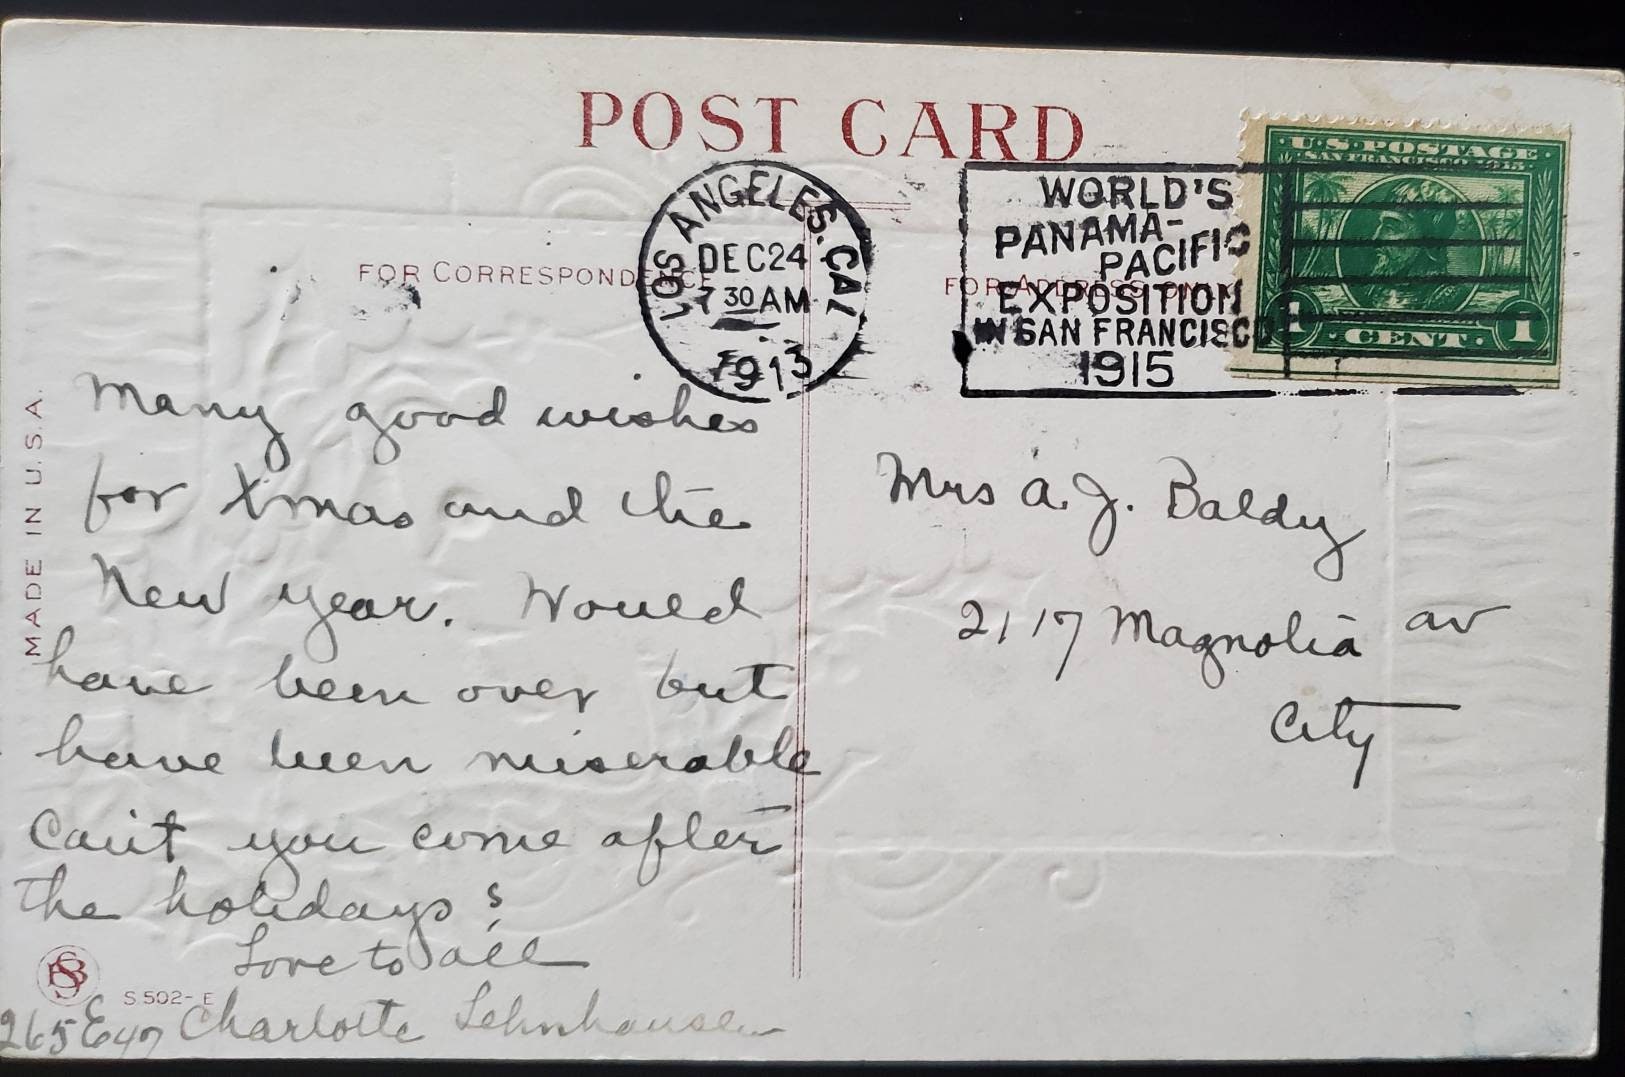 POST CARD
LOS ANGELES, CAL
DEC 24
7 30 AM
1913
WORLD'S
PANAMA-
PACIFIC
EXPOSITION
IN SAN FRANCISCO
1915
U·S·POSTAGE
SAN FRANCISCO 1915
1 CENT 1
FOR CORRESPONDENCE
FOR ADDRESS ONLY
MADE IN U.S.A.
Many good wishes
for Xmas and the
New year. Would
have been over but
have been miserable
Can't you come after
the holidays?
Love to all
Charlotte Lehnhausen
265 E 47
S 502-E
Mrs A. J. Baldy
2117 Magnolia av
City